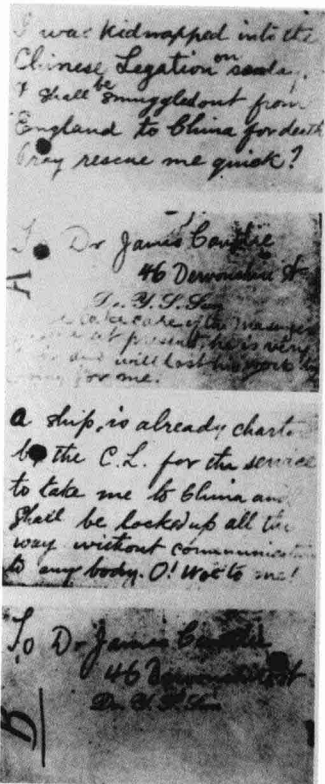 I was kidnapped into the
Chinese Legation on sunday.
& shall be smuggled out from
England to China for death
Pray rescue me quick?
A
To Dr James Cantlie
46 Devonshire St
Dr. Y. S. Sun
take care of the messenger
at present, he is very
and will lost his work by
for me.
a ship, is already charter
by the C.L. for the service
to take me to China and
shall be locked up all the
way without communication
to any body. O! Woe to me!
To Dr James Cantlie
46 Devonshire St
Dr. Y. S. Sun
B